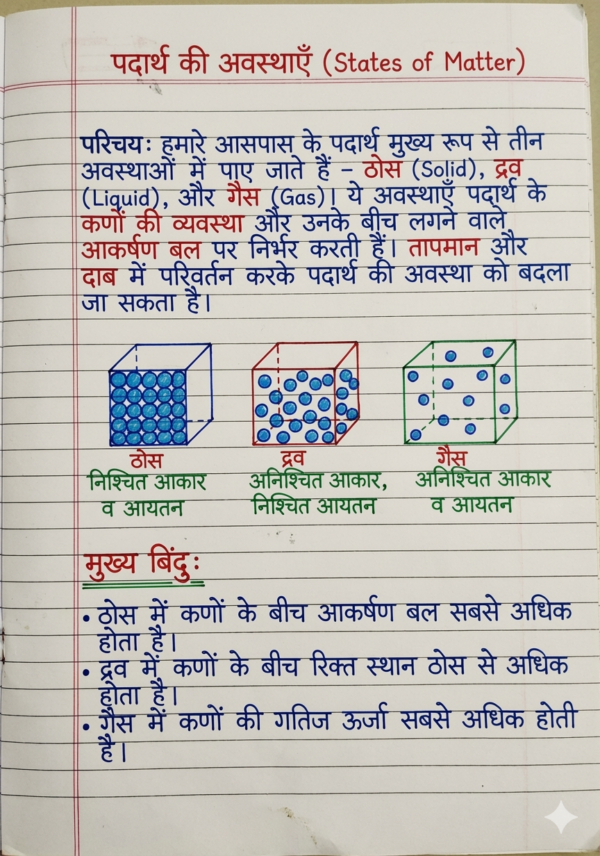 पदार्थ की अवस्थाएँ (States of Matter)
परिचय: हमारे आसपास के पदार्थ मुख्य रूप से तीन
अवस्थाओं में पाए जाते हैं – ठोस (Solid), द्रव
(Liquid), और गैस (Gas)। ये अवस्थाएँ पदार्थ के
कणों की व्यवस्था और उनके बीच लगने वाले
आकर्षण बल पर निर्भर करती हैं। तापमान और
दाब में परिवर्तन करके पदार्थ की अवस्था को बदला
जा सकता है।
ठोस
निश्चित आकार
व आयतन
द्रव
अनिश्चित आकार,
निश्चित आयतन
गैस
अनिश्चित आकार
व आयतन
मुख्य बिंदु:
• ठोस में कणों के बीच आकर्षण बल सबसे अधिक
होता है।
• द्रव में कणों के बीच रिक्त स्थान ठोस से अधिक
होता है।
• गैस में कणों की गतिज ऊर्जा सबसे अधिक होती
है।